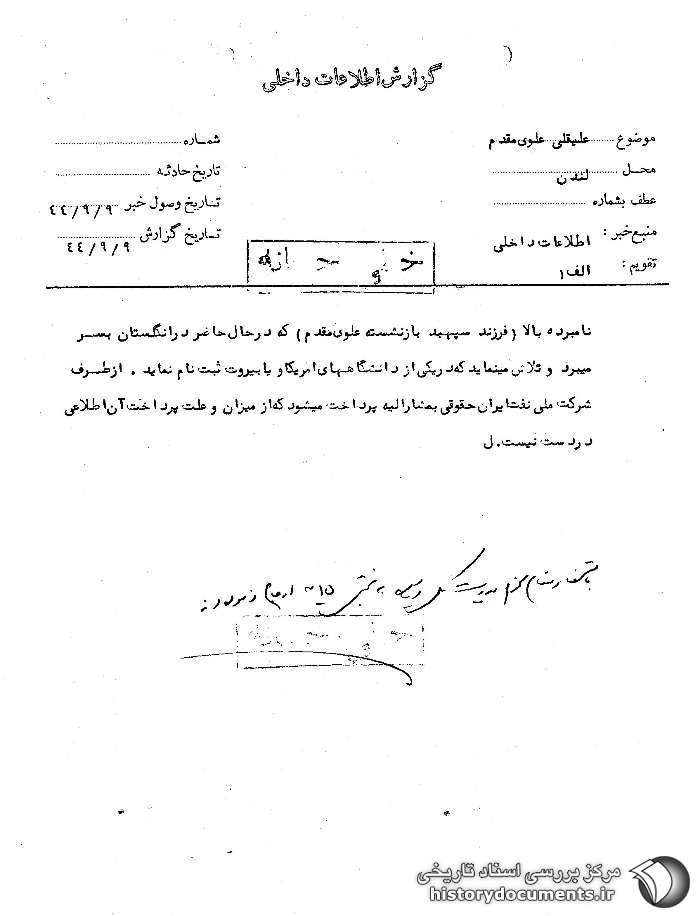 گزارش اطلاعات داخلی
موضوع علیقلی علوی مقدم
محل لندن
عطف بشماره
منبع خبر: اطلاعات داخلی
تقویم: الف ۱
شماره
تاریخ حادثه
تاریخ وصول خبر ۴۴/۹/۹
تاریخ گزارش ۴۴/۹/۹
نامبرده بالا (فرزند سپهبد بازنشسته علوی مقدم) که درحال حاضر درانگلستان بسر
میبرد و تلاش مینماید که دریکی از دانشگاههای امریکا و یا بیروت ثبت نام نماید. ازطرف
شرکت ملی نفت ایران حقوقی بمشارالیه پرداخت میشود که از میزان و علت پرداخت آن اطلاعی
دردست نیست. ل
مرکز بررسی اسناد تاریخی
historydocuments.ir